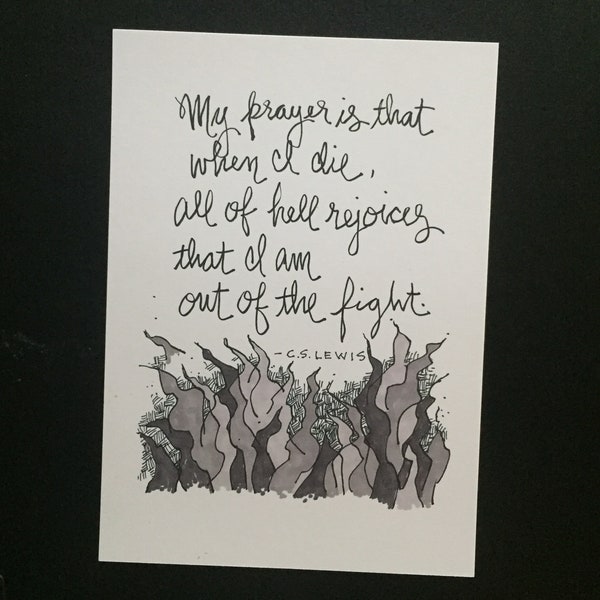 My prayer is that
when I die,
all of hell rejoices
that I am
out of the fight.
- C.S. LEWIS